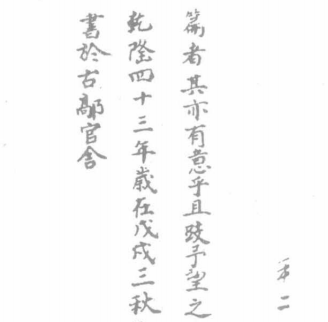 篇者其亦有意乎且跂予望之
乾隆四十三年歲在戊戌三秋
書於古鄗官舍